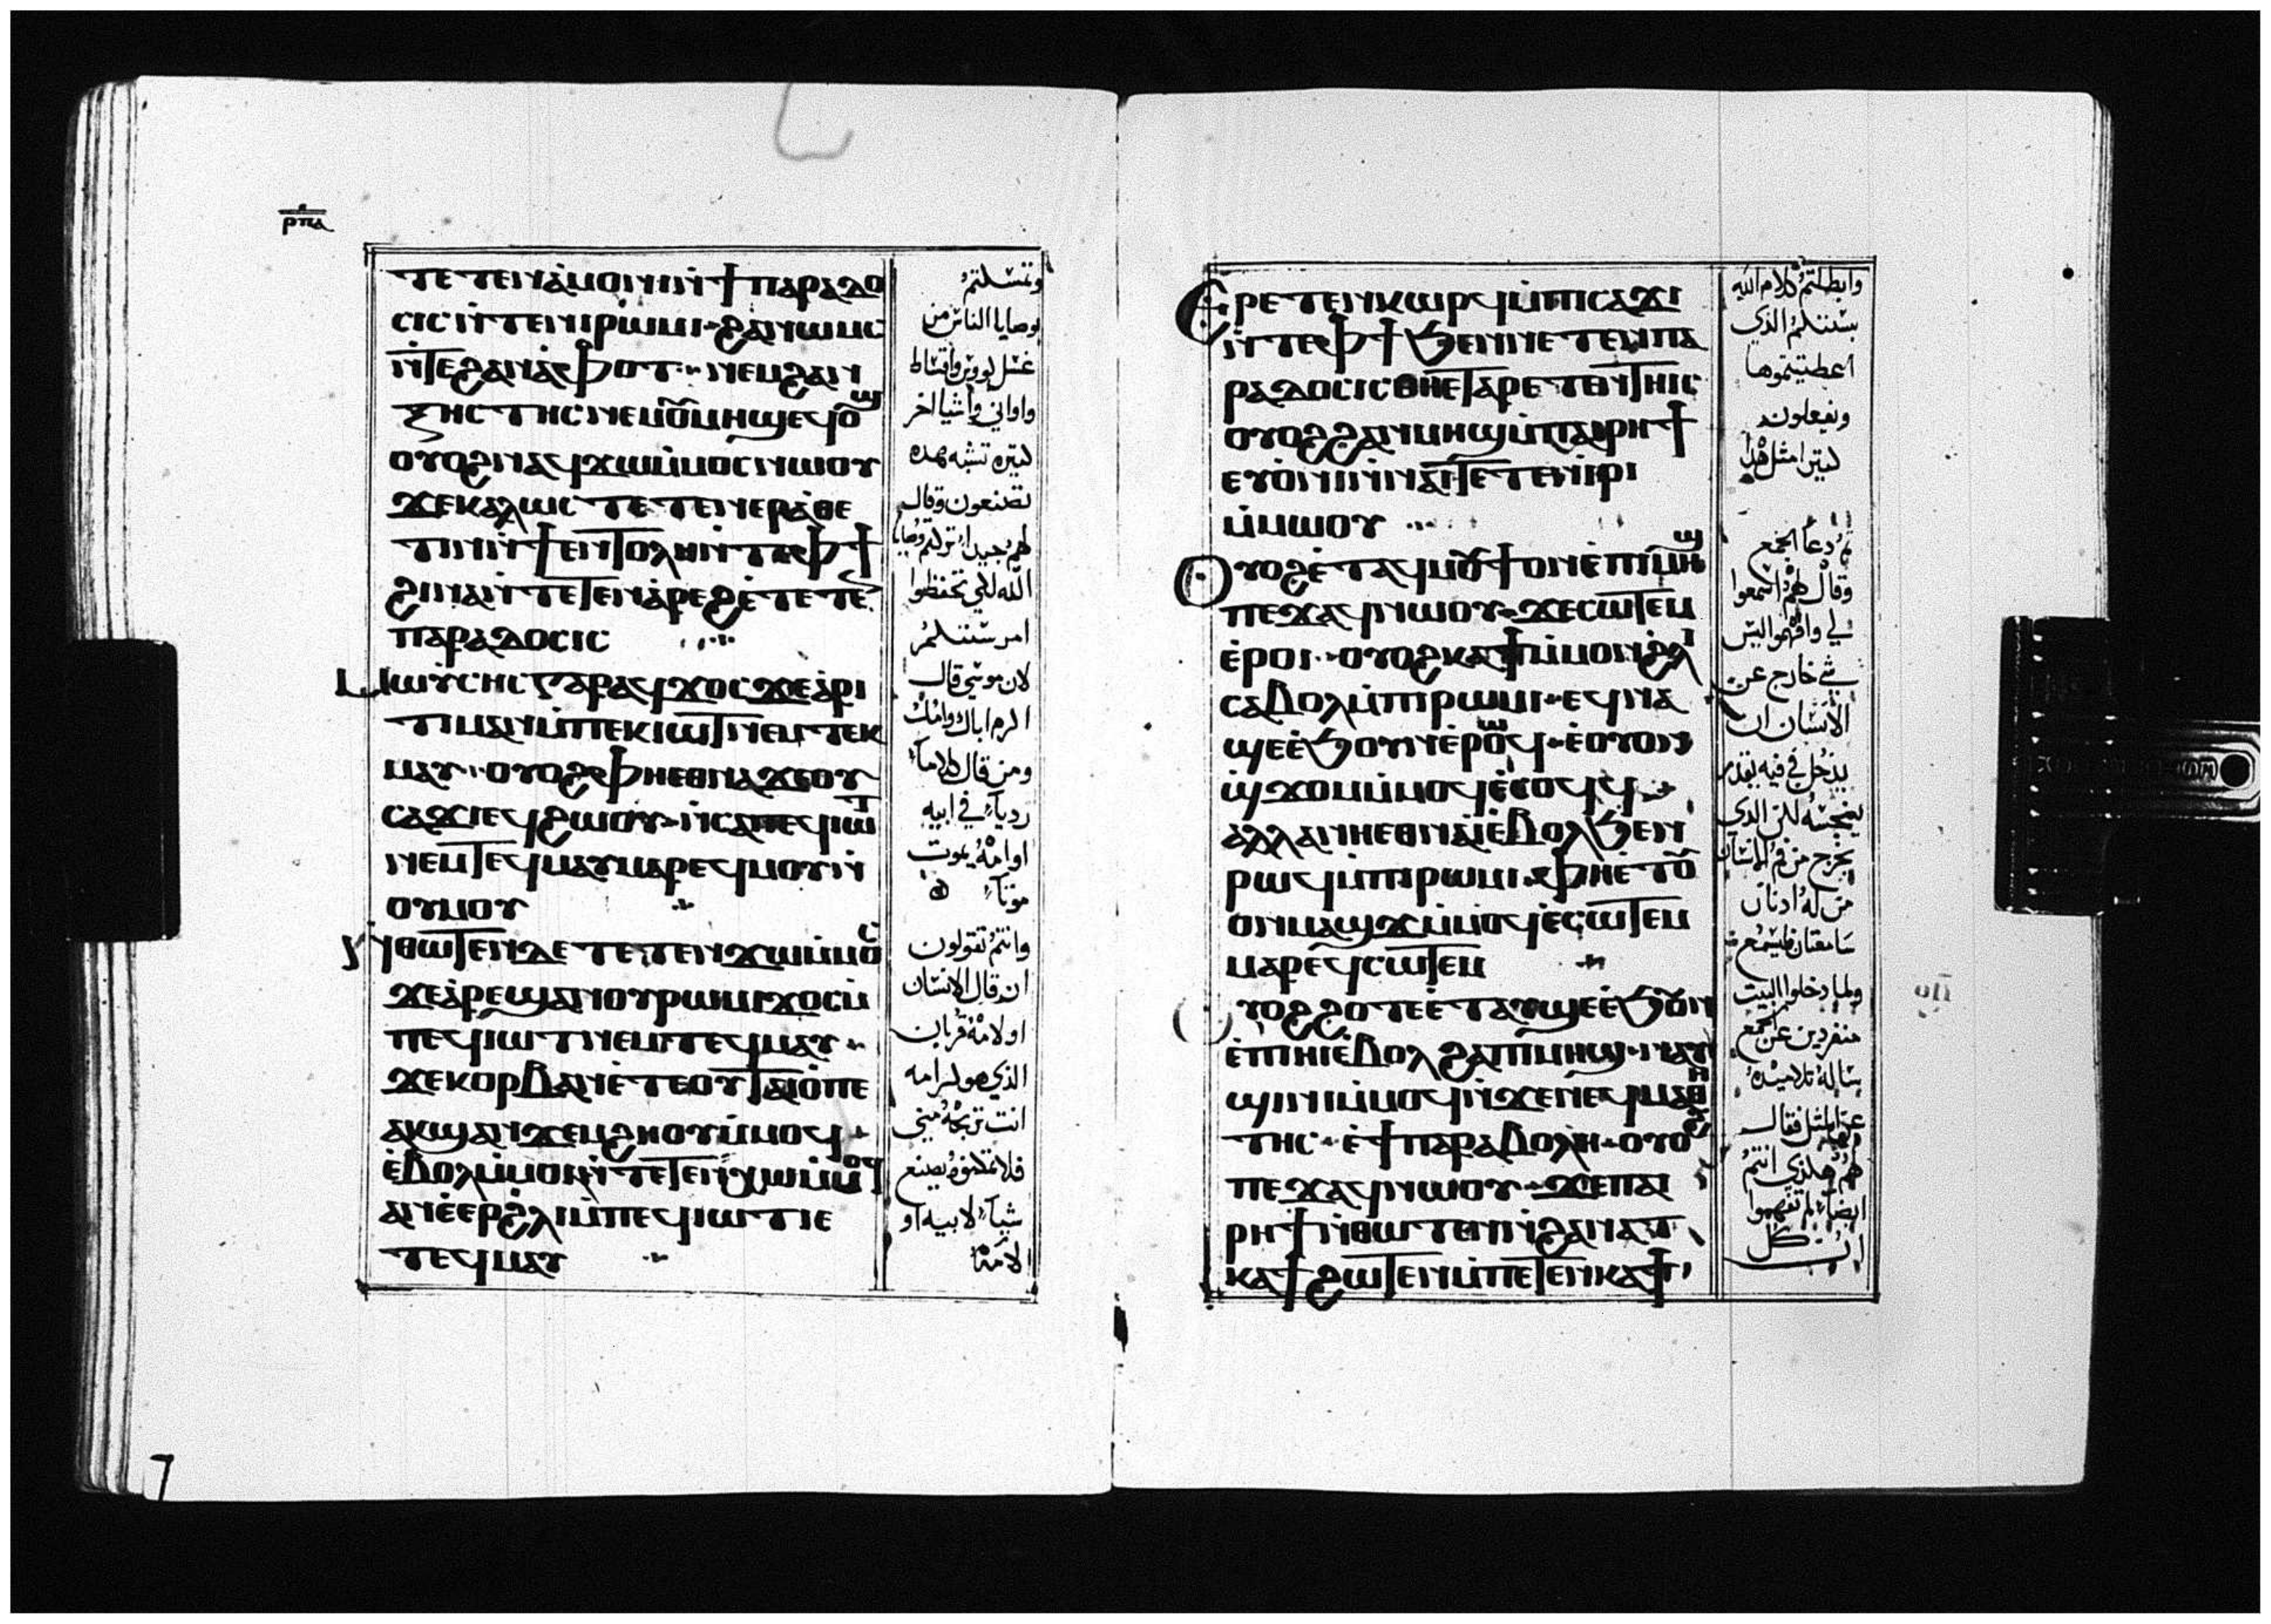 ⲣⲡⲁ
ⲧⲉⲧⲉⲛⲁ̀ⲙⲟⲛⲓ ⲛ̀ϯⲡⲁⲣⲁⲇⲟ
ⲥⲓⲥ ⲛ̀ⲧⲉⲛⲓⲣⲱⲙⲓ ϩⲁⲛⲱⲙⲥ
ⲛ̀ⲧⲉϩⲁⲛⲁ̀ⲫⲟⲧ ⲛⲉⲙϩⲁⲛ
ⲝⲏⲥⲧⲏⲥ ⲛⲉⲙⲟⲩⲙⲏϣ ⲉϥⲟϣ
ⲟⲩⲟϩ ⲛⲁϥϫⲱⲙ̀ⲙⲟⲥ ⲛⲱⲟⲩ
ϫⲉⲕⲁⲗⲱⲥ ⲧⲉⲧⲉⲛⲉⲣⲁ̀ⲑⲉ
ⲧⲓⲛ ⲛ̀ϯⲉⲛⲧⲟⲗⲏ ⲛ̀ⲧⲉⲫϯ
ϩⲓⲛⲁ ⲛ̀ⲧⲉⲧⲉⲛⲁ̀ⲣⲉϩ ⲉ̀ⲧⲉⲧⲉⲛ
ⲡⲁⲣⲁⲇⲟⲥⲓⲥ
ⲙⲱⲩ̀ⲥⲏⲥ ⲅⲁⲣ ⲁϥϫⲟⲥ ϫⲉⲁ̀ⲣⲓ
ⲧⲓⲙⲁⲛ ⲙ̀ⲡⲉⲕⲓⲱⲧ ⲛⲉⲙ ⲧⲉⲕ
ⲙⲁⲩ ⲟⲩⲟϩ ⲫⲏⲉⲑⲛⲁϫⲉⲟⲩ
ⲥⲁϫⲓ ⲉϥϩⲱⲟⲩ ⲛ̀ⲥⲁⲡⲉϥⲓⲱⲧ
ⲛⲉⲙⲧⲉϥⲙⲁⲩ ⲙⲁⲣⲉϥⲙⲟⲩ ⲛ̀
ⲟⲩⲙⲟⲩ
ⲛ̀ⲑⲱⲧⲉⲛ ⲇⲉ ⲧⲉⲧⲉⲛϫⲱⲙ̀ⲙⲟⲥ
ϫⲉⲁ̀ⲣⲉϣⲁⲛⲟⲩⲣⲱⲙⲓ ϫⲟⲥ ⲙ̀
ⲡⲉϥⲓⲱⲧ ⲛⲉⲙⲧⲉϥⲙⲁⲩ
ϫⲉⲕⲟⲣⲃⲁⲛ ⲉ̀ⲧⲉⲟⲩⲧⲁⲓⲟ̀ⲡⲉ
ⲁⲕϣⲁⲛϫⲉⲙϩⲏⲟⲩ ⲙ̀ⲙⲟϥ
ⲉ̀ⲃⲟⲗⲙ̀ⲙⲟⲓ ⲛ̀ⲧⲉⲧⲉⲛⲭⲱ ⲙ̀ⲙⲟϥ
ⲁⲛ ⲉ̀ⲉⲣϩ̀ⲗⲓ ⲙ̀ⲡⲉϥⲓⲱⲧ ⲓⲉ
ⲧⲉϥⲙⲁⲩ
وتمسكتم
بوصايا الناس من
غسل كووس واقساط
واواني واشيا اخر
كثيره تشبه هده
تصنعون وقال
لهم جيدا تركتم وصايا
الله لكي تحفظوا
امر سنتكم
لان موسي قال
اكرم اباك وامك
ومن قال كلاماً
ردياً في ابيه
او امه يموت
موتاً
وانتم تقولون
ان قال الانسان
او لامه قربان
الذي هو كرامه
انت تربحه مني
فلا تتركوه يصنع
شياً لابيه او
لامه
ⲉⲣⲉⲧⲉⲛⲕⲱⲣϥ ⲙ̀ⲡⲓⲥⲁϫⲓ
ⲛ̀ⲧⲉⲫϯ ϧⲉⲛⲛⲉⲧⲉⲛⲡⲁ
ⲣⲁⲇⲟⲥⲓⲥ ⲑⲏⲉⲧⲁⲣⲉⲧⲉⲛⲧⲏⲓⲥ
ⲟⲩⲟϩ ϩⲁⲛⲙⲏϣ ⲙ̀ⲡⲁⲓⲣⲏϯ
ⲉⲩⲟ̀ⲛⲓ ⲛ̀ⲛⲁⲓ ⲧⲉⲧⲉⲛⲓ̀ⲣⲓ
ⲙ̀ⲙⲱⲟⲩ
ⲟⲩⲟϩ ⲉ̀ⲧⲁϥⲙⲟⲩϯ ⲟⲛ ⲉ̀ⲡⲓⲙⲏϣ
ⲡⲉϫⲁϥ ⲛⲱⲟⲩ ϫⲉⲥⲱⲧⲉⲙ
ⲉ̀ⲣⲟⲓ ⲟⲩⲟϩ ⲕⲁϯ ⲙ̀ⲙⲟⲛ ϩ̀ⲗⲓ
ⲥⲁⲃⲟⲗ ⲙ̀ⲡⲓⲣⲱⲙⲓ ⲉϥⲛⲁ
ϣⲉ ⲉ̀ϧⲟⲩⲛ ⲉ̀ⲣⲱϥ ⲉ̀ⲟⲩⲟⲛ
ϣ̀ϫⲟⲙ ⲙ̀ⲙⲟϥ ⲉ̀ⲥⲟϥϥ
ⲁⲗⲗⲁ ⲛⲏⲉⲑⲛⲁⲓ̀ ⲉ̀ⲃⲟⲗϧⲉⲛ
ⲣⲱϥ ⲙ̀ⲡⲓⲣⲱⲙⲓ ⲫⲏⲉ̀ⲧⲉⲟⲩ
ⲟⲛ ⲙⲁϣϫ ⲙ̀ⲙⲟϥ ⲉ̀ⲥⲱⲧⲉⲙ
ⲙⲁⲣⲉϥⲥⲱⲧⲉⲙ
ⲟⲩⲟϩ ϩⲟⲧⲉ ⲉ̀ⲧⲁⲩϣⲉ ⲉ̀ϧⲟⲩⲛ
ⲉ̀ⲡⲓⲏⲓ ⲉ̀ⲃⲟⲗϩⲁⲡⲓⲙⲏϣ ⲛⲁⲩ
ϣⲓⲛⲓ ⲙ̀ⲙⲟϥ ⲛ̀ϫⲉⲛⲉϥⲙⲁⲑⲏ
ⲧⲏⲥ ⲉ̀ϯⲡⲁⲣⲁⲃⲟⲗⲏ ⲟⲩⲟϩ
ⲡⲉϫⲁϥ ⲛⲱⲟⲩ ϫⲉⲡⲁⲓ
ⲣⲏϯ ⲛ̀ⲑⲱⲧⲉⲛ ϩⲁⲛⲁⲧ
ⲕⲁϯ ϩⲱⲧⲉⲛ ⲙ̀ⲡⲉⲧⲉⲛⲕⲁϯ
وابطلتم كلام الله
بسنتكم الذي
اعطيتموها
وتفعلون
كثيرا مثل هدا
ثم دعا الجمع
وقال لهم اسمعوا
لي وافهموا ليس
شي خارج عن
الانسان ان
يدخل في فيه يقدر
ينجسه لكن الدي
يخرج من فم الانسان
من له ادنان
سامعتان فليسمع
ولما دخلوا البيت
منفردين عن الجمع
يساله تلاميده
عن المثل فقال
لهم هكذي انتم
ايضاً لم تفهموا
ان كل